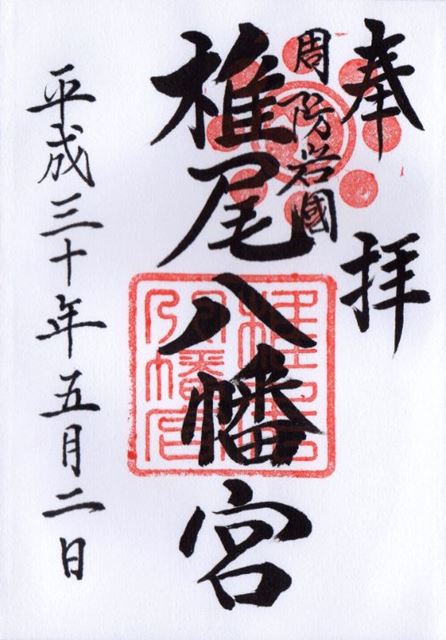 奉拝
周防岩國
椎尾八幡宮
平成三十年五月二日